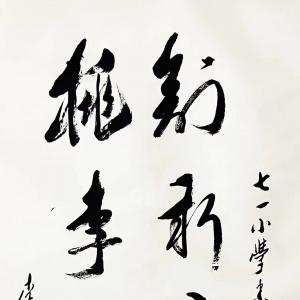 七一小學
创新
桃李